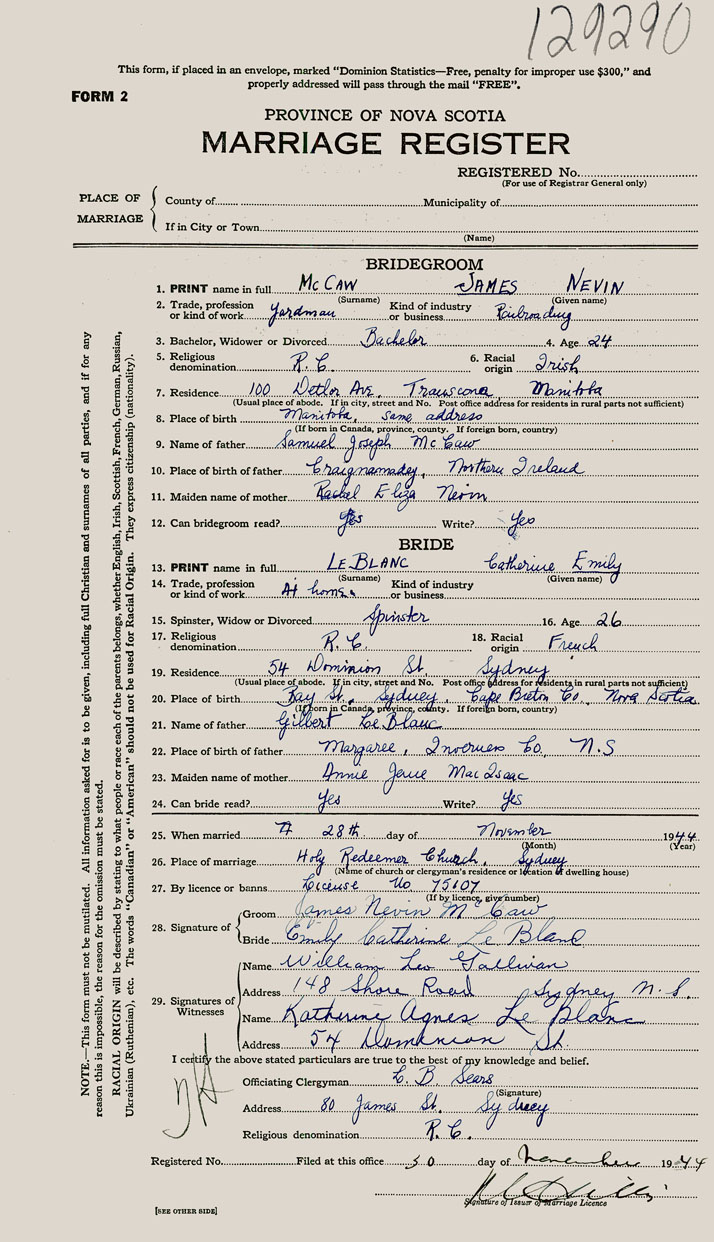 129290
This form, if placed in an envelope, marked “Dominion Statistics—Free, penalty for improper use $300,” and
properly addressed will pass through the mail “FREE”.
FORM 2
PROVINCE OF NOVA SCOTIA
MARRIAGE REGISTER
REGISTERED No.
(For use of Registrar General only)
PLACE OF MARRIAGE
County of Municipality of
If in City or Town
(Name)
BRIDEGROOM
1. PRINT name in full McCAW JAMES NEVIN
(Surname) (Given name)
2. Trade, profession or kind of work Yardman Kind of industry or business Railroading
3. Bachelor, Widower or Divorced Bachelor 4. Age 24
5. Religious denomination R.C. 6. Racial origin Irish
7. Residence 100 Detlor Ave, Transcona, Manitoba
(Usual place of abode. If in city, street and No. Post office address for residents in rural parts not sufficient)
8. Place of birth Manitoba, same address
(If born in Canada, province, county. If foreign born, country)
9. Name of father Samuel Joseph McCaw
10. Place of birth of father Craignamaday, Northern Ireland
11. Maiden name of mother Rachel Eliza Nevin
12. Can bridegroom read? Yes Write? Yes
BRIDE
13. PRINT name in full LEBLANC Catherine Emily
(Surname) (Given name)
14. Trade, profession or kind of work At home. Kind of industry or business
15. Spinster, Widow or Divorced Spinster 16. Age 26
17. Religious denomination R.C. 18. Racial origin French
19. Residence 54 Dominion St Sydney
(Usual place of abode. If in city, street and No. Post office address for residents in rural parts not sufficient)
20. Place of birth Bay St., Sydney, Cape Breton Co., Nova Scotia
(If born in Canada, province, county. If foreign born, country)
21. Name of father Gilbert LeBlanc
22. Place of birth of father Margaree, Inverness Co., N.S
23. Maiden name of mother Annie Jane MacIsaac
24. Can bride read? Yes Write? Yes
25. When married 28th day of November 1944
(Month) (Year)
26. Place of marriage Holy Redeemer Church, Sydney
(Name of church or clergyman's residence or location of dwelling house)
27. By licence or banns License No 75107
(If by licence, give number)
28. Signature of
Groom James Nevin McCaw
Bride Emily Catherine Le Blanc
29. Signatures of Witnesses
Name William Leo Gallivan
Address 148 Shore Road Sydney N.S.
Name Katherine Agnes Le Blanc
Address 54 Dominion St.
I certify the above stated particulars are true to the best of my knowledge and belief.
Officiating Clergyman C. B. Sears
(Signature)
Address 80 James St. Sydney
Religious denomination R.C.
Registered No. Filed at this office 30 day of November 1944
Signature of Issuer of Marriage Licence
[SEE OTHER SIDE]
NOTE.—This form must not be mutilated. All information asked for is to be given, including full Christian and surnames of all parties, and if for any
reason this is impossible, the reason for the omission must be stated.
RACIAL ORIGIN will be described by stating to what people or race each of the parents belongs, whether English, Irish, Scottish, French, German, Russian,
Ukrainian (Ruthenian), etc. The words “Canadian” or “American” should not be used for Racial Origin. They express citizenship (nationality).